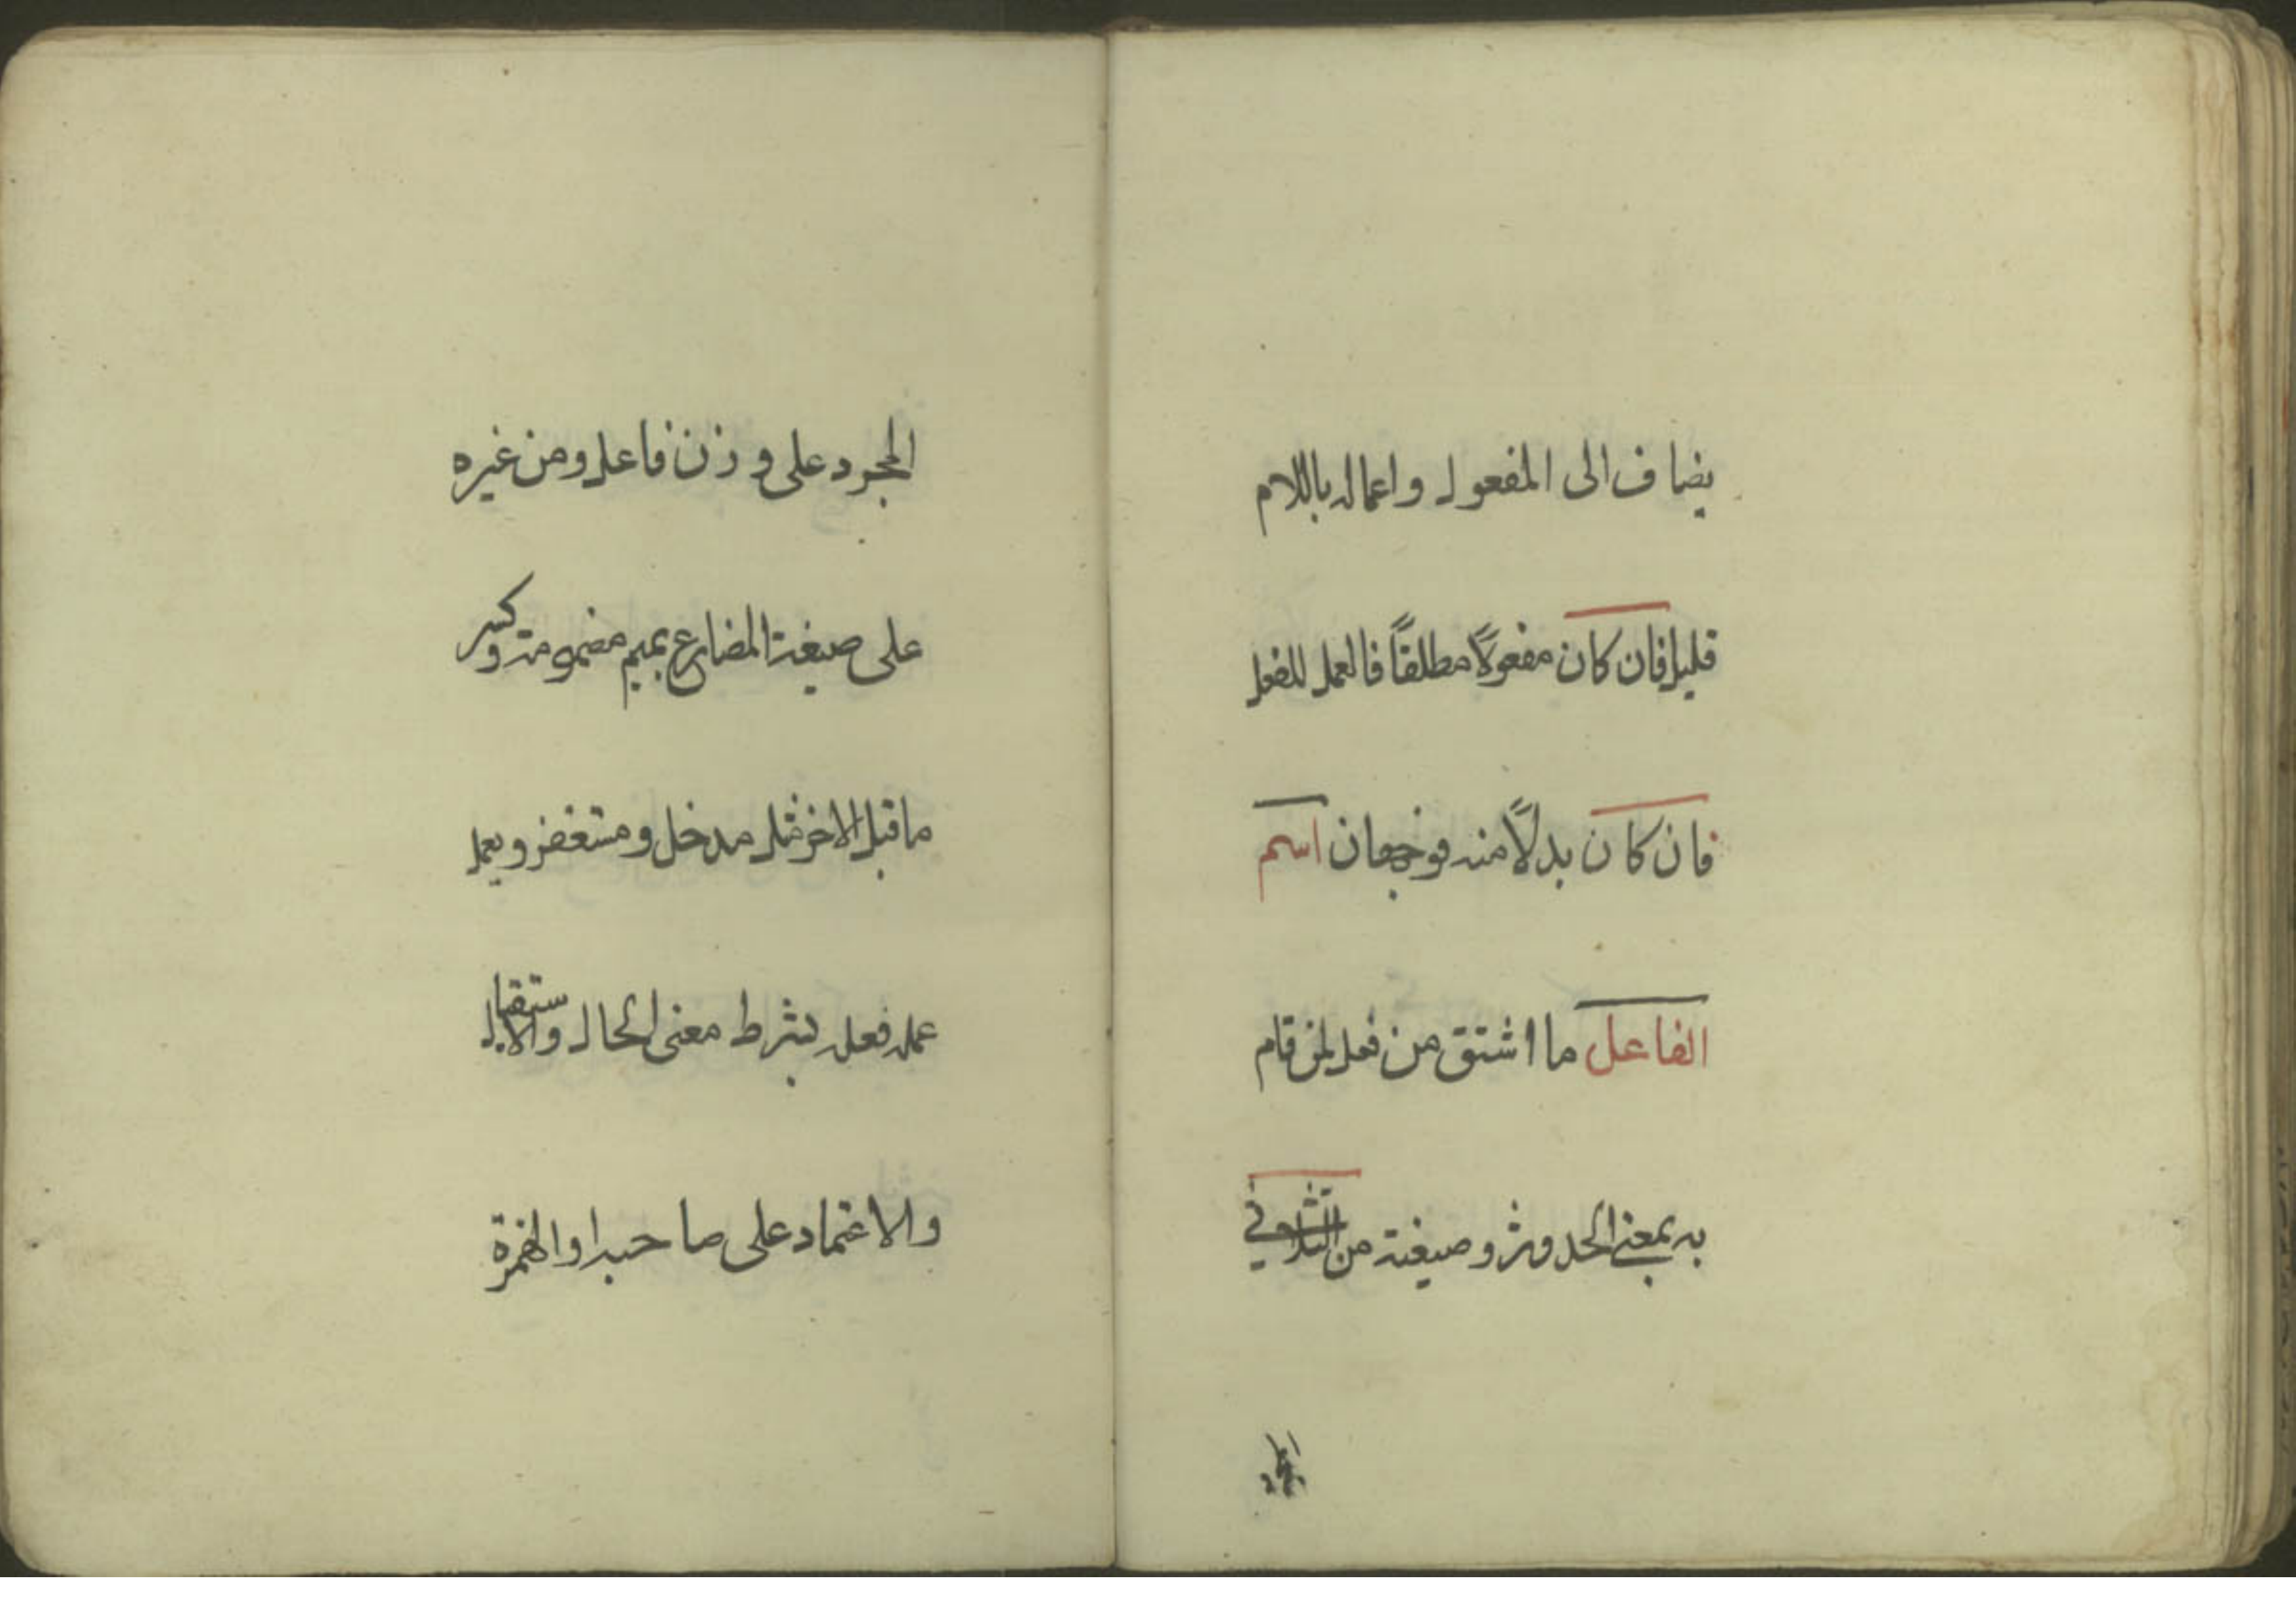 يضاف الى المفعول واعماله باللام
قليل فان كان مفعولاً مطلقاً فالعمل للفعل
فان كان بدلاً منه فوجهان اسم
الفاعل ما اشتق من فعل لمن قام
به بمعنى الحدوث وصيغته من الثلاثي
المجرد
المجرد على وزن فاعل ومن غيره
على صيغة المضارع بميم مضمومة وكسر
ما قبل الاخر مثل مدخل ومستغفر ويعمل
عمل فعله بشرط معنى الحال والاستقبال
والاعتماد على صاحبه او الهمزة